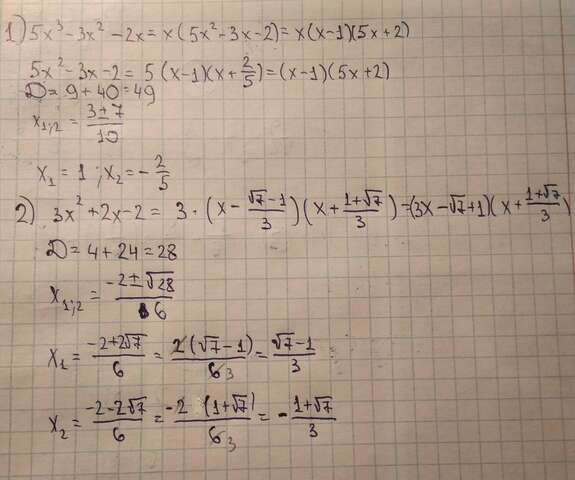 1) 5x³ - 3x² - 2x = x(5x² - 3x - 2) = x(x - 1)(5x + 2)
5x² - 3x - 2 = 5(x - 1)(x + 2/5) = (x - 1)(5x + 2)
D = 9 + 40 = 49
x₁;₂ = (3 ± 7)/10
x₁ = 1 ; x₂ = - 2/5
2) 3x² + 2x - 2 = 3 · (x - (√7 - 1)/3)(x + (1 + √7)/3) = (3x - √7 + 1)(x + (1 + √7)/3)
D = 4 + 24 = 28
x₁;₂ = (-2 ± √28)/6
x₁ = (-2 + 2√7)/6 = 2(√7 - 1)/6 3 = (√7 - 1)/3
x₂ = (-2 - 2√7)/6 = -2 (1 + √7)/6 3 = - (1 + √7)/3